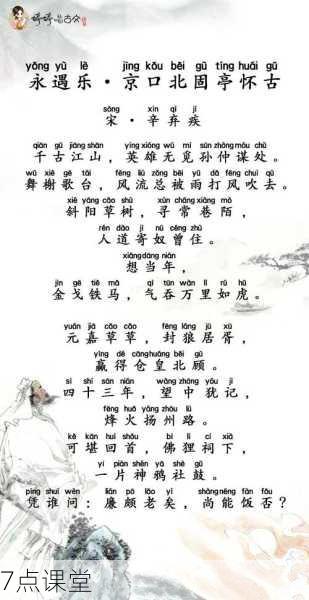 婷婷诗教古文
yǒng yù lè jīng kǒu běi gù tíng huái gǔ
永遇乐·京口北固亭怀古
sòng xīn qì jí
宋·辛弃疾
qiān gǔ jiāng shān yīng xióng wú mì sūn zhòng móu chù
千古江山，英雄无觅孙仲谋处。
wǔ xiè gē tái fēng liú zǒng bèi yǔ dǎ fēng chuī qù
舞榭歌台，风流总被雨打风吹去。
xié yáng cǎo shù xún cháng xiàng mò
斜阳草树，寻常巷陌，
rén dào jì nú céng zhù
人道寄奴曾住。
xiǎng dāng nián
想当年，
jīn gē tiě mǎ qì tūn wàn lǐ rú hǔ
金戈铁马，气吞万里如虎。
yuán jiā cǎo cǎo fēng láng jū xū
元嘉草草，封狼居胥，
yíng dé cāng huáng běi gù
赢得仓皇北顾。
sì shí sān nián wàng zhōng yóu jì
四十三年，望中犹记，
fēng huǒ yáng zhōu lù
烽火扬州路。
kě kān huí shǒu bì lí cí xià
可堪回首，佛狸祠下，
yí piàn shén yā shè gǔ
一片神鸦社鼓。
píng shuí wèn lián pō lǎo yǐ shàng néng fàn fǒu
凭谁问：廉颇老矣，尚能饭否？
7点课堂